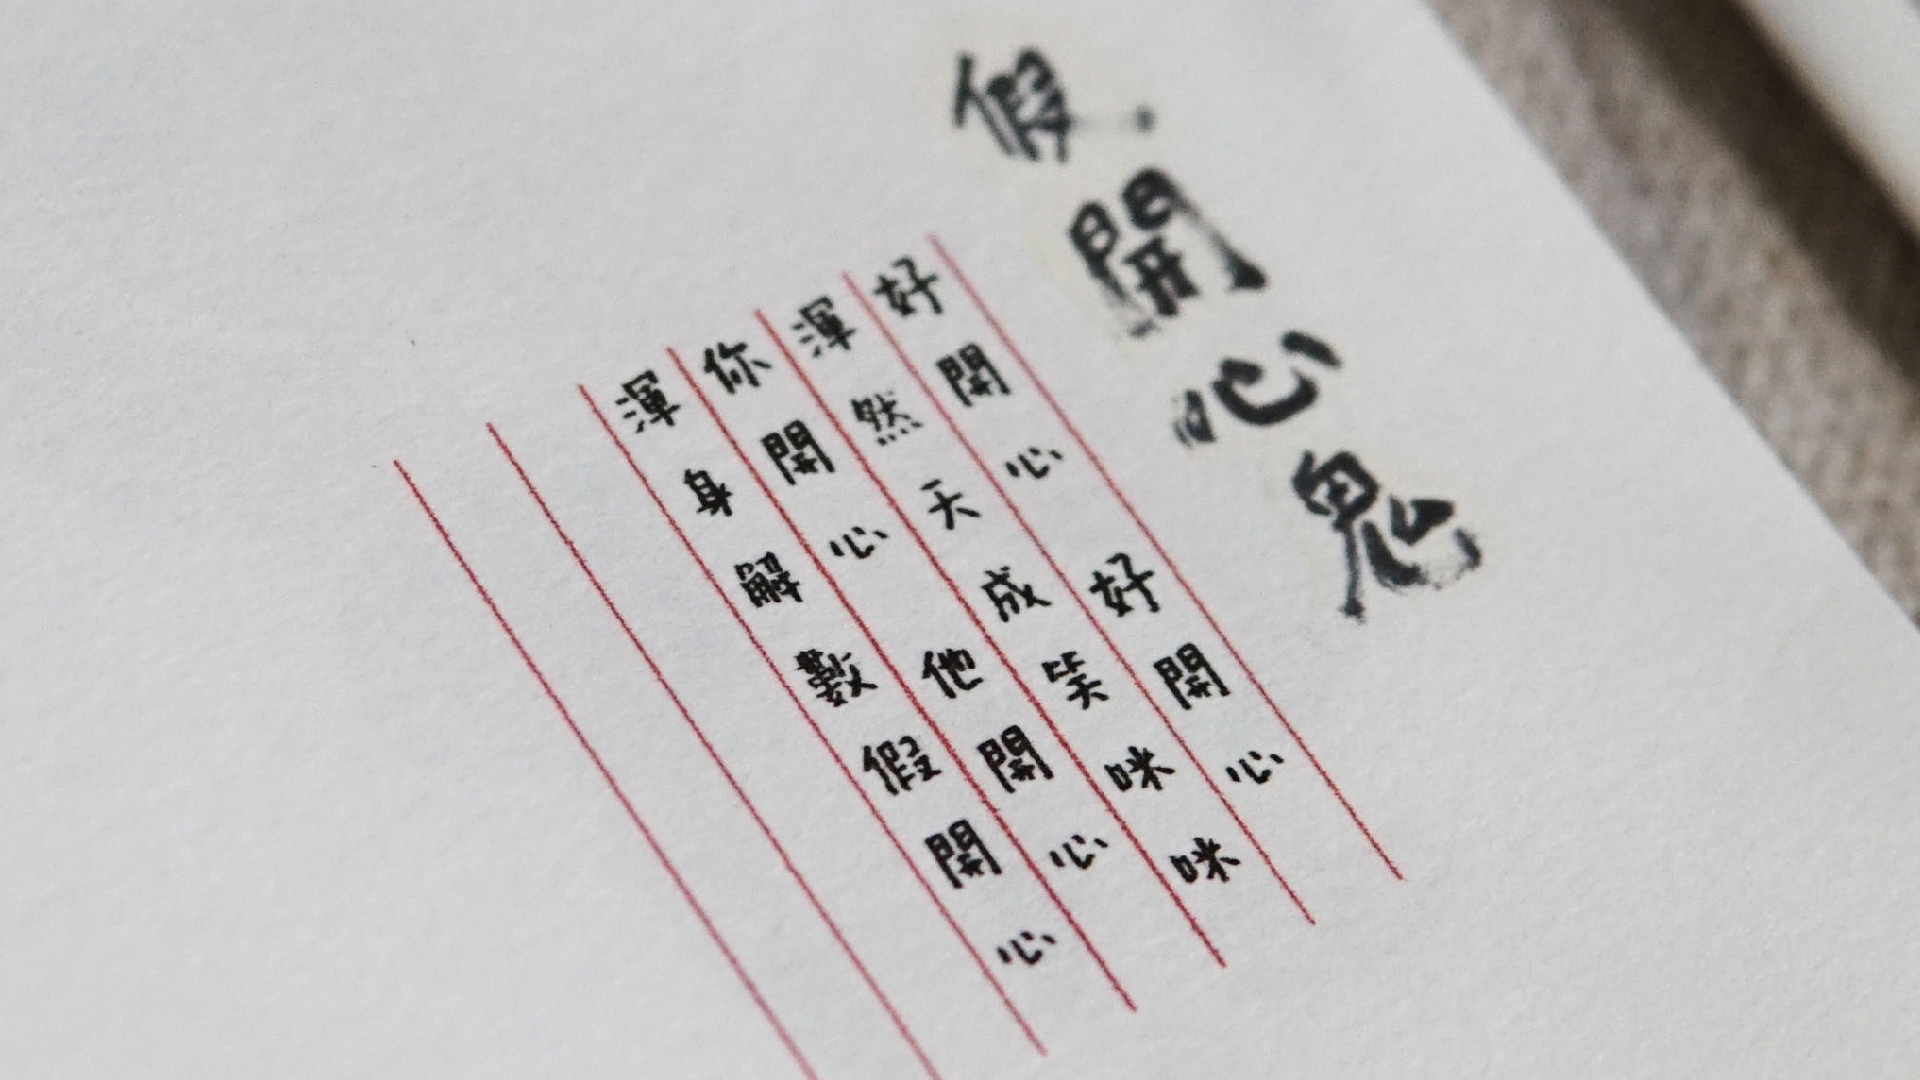 假開心鬼
好開心 好開心
渾然天成笑咪咪
你開心 他開心
渾身解數假開心